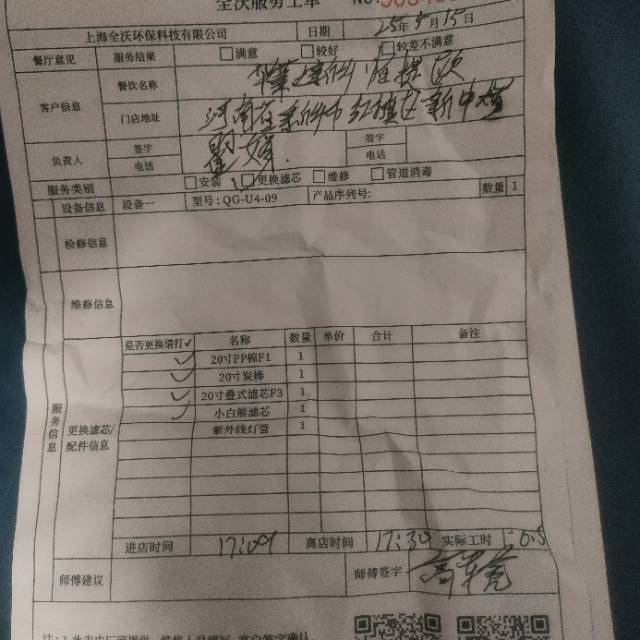 全沃服务工单 No.
上海全沃环保科技有限公司 日期 25年8月15日
餐厅意见 服务结果 满意 较好 较差不满意
客户信息 餐饮名称
门店地址 河南省 市红旗区新中
负责人 签字 签字
电话 电话
服务类别 安装 更换滤芯 维修 管道消毒
设备信息 设备一 型号:QG-U4-09 产品序列号: 数量 1
检修信息
维修信息
服务信息
更换滤芯/配件信息
是否更换请打✓ 名称 数量 单价 合计 备注
✓ 20寸PP棉F1 1
✓ 20寸炭棒 1
✓ 20寸叠式滤芯F3 1
✓ 小白熊滤芯 1
紫外线灯管 1
进店时间 17:09 离店时间 17:30 实际工时 0.5
师傅建议 师傅签字